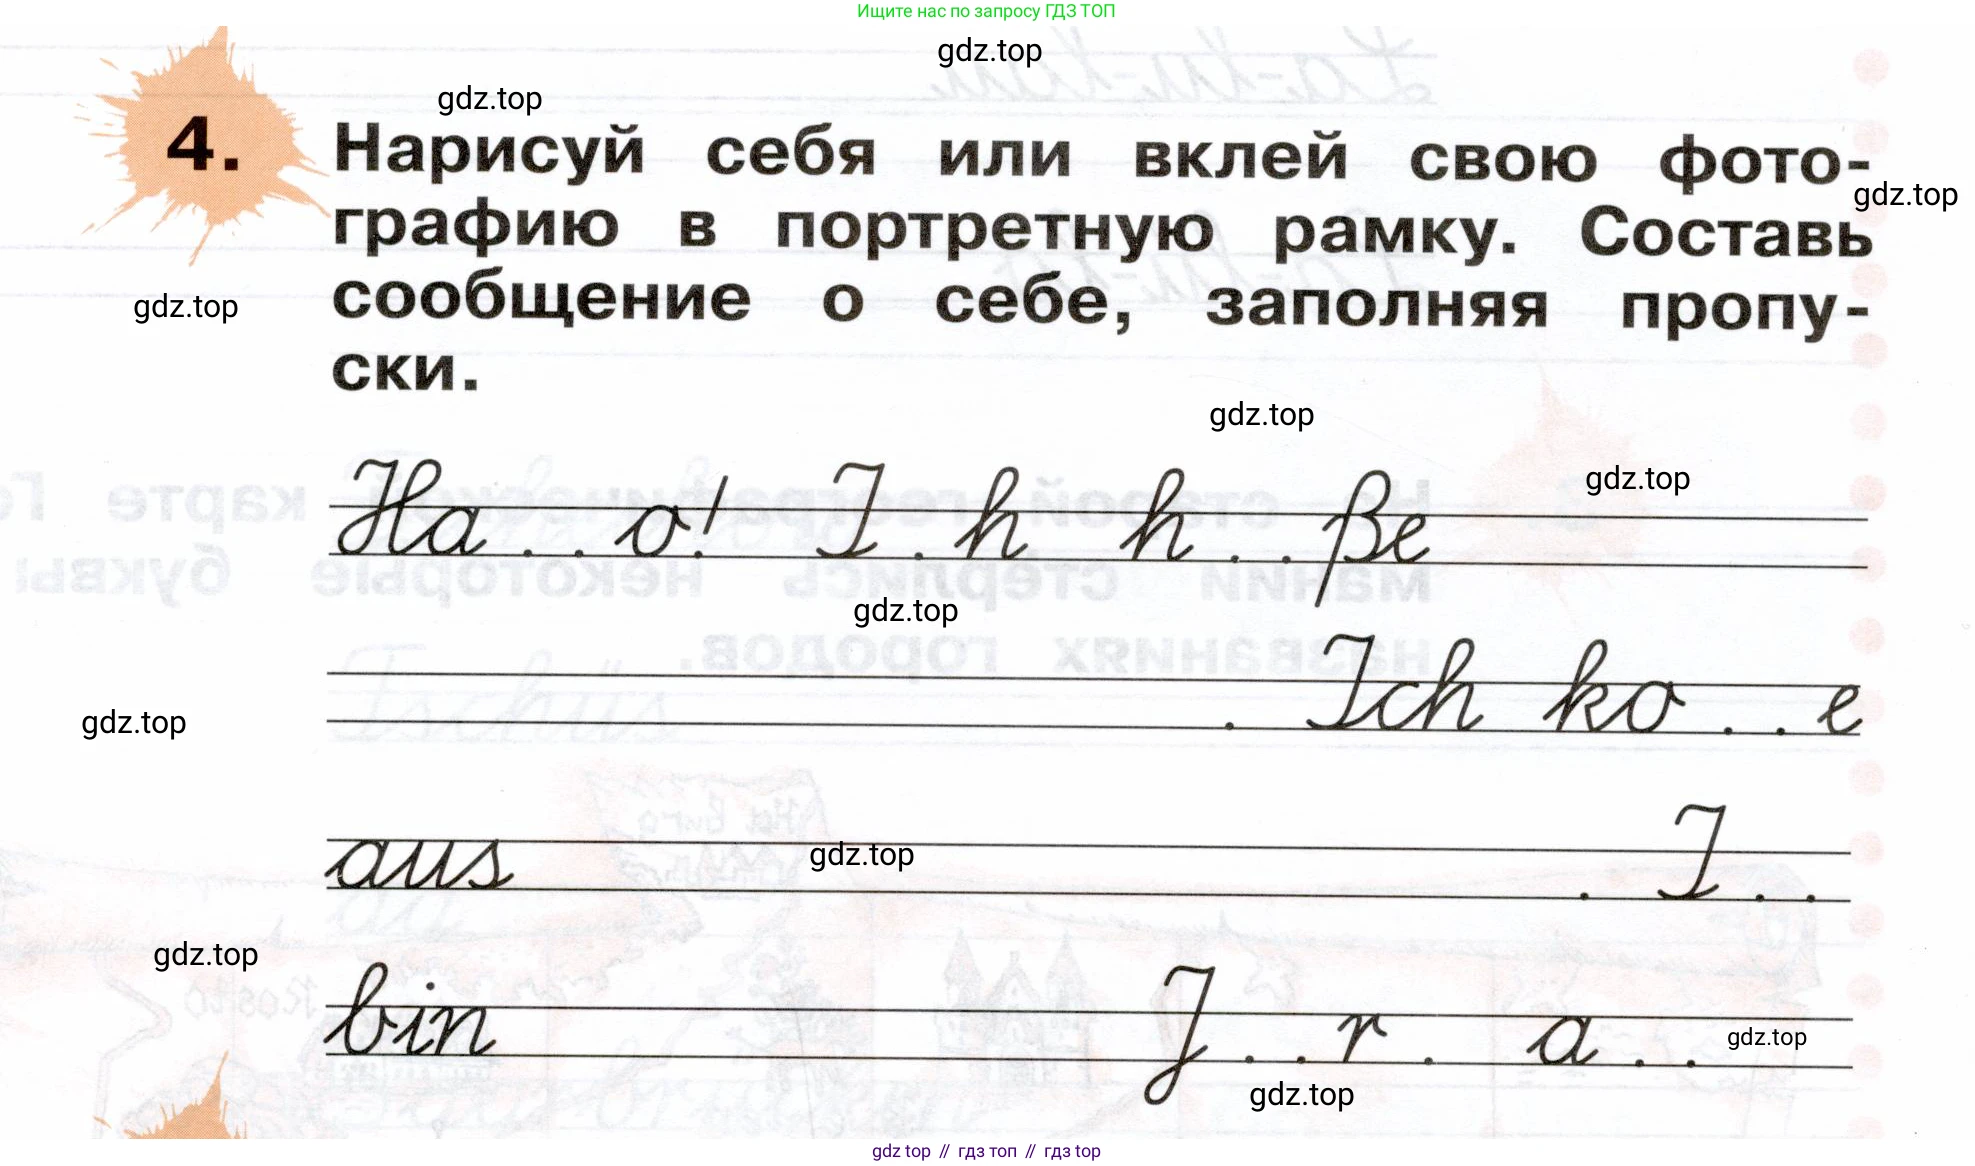 Ищите нас по запросу ГДЗ ТОП
gdz.top
gdz.top
4. Нарисуй себя или вклей свою фото-
gdz.top
графию в портретную рамку. Составь
gdz.top
сообщение о себе, заполняя пропу-
ски.
gdz.top
gdz.top
Ha . . o! I . h h . . ße
gdz.top
. Ich ko . . e
gdz.top
aus . I . .
gdz.top
gdz.top
bin J . . r . a . .
gdz.top
gdz.top
gdz top // гдз топ // гдз top